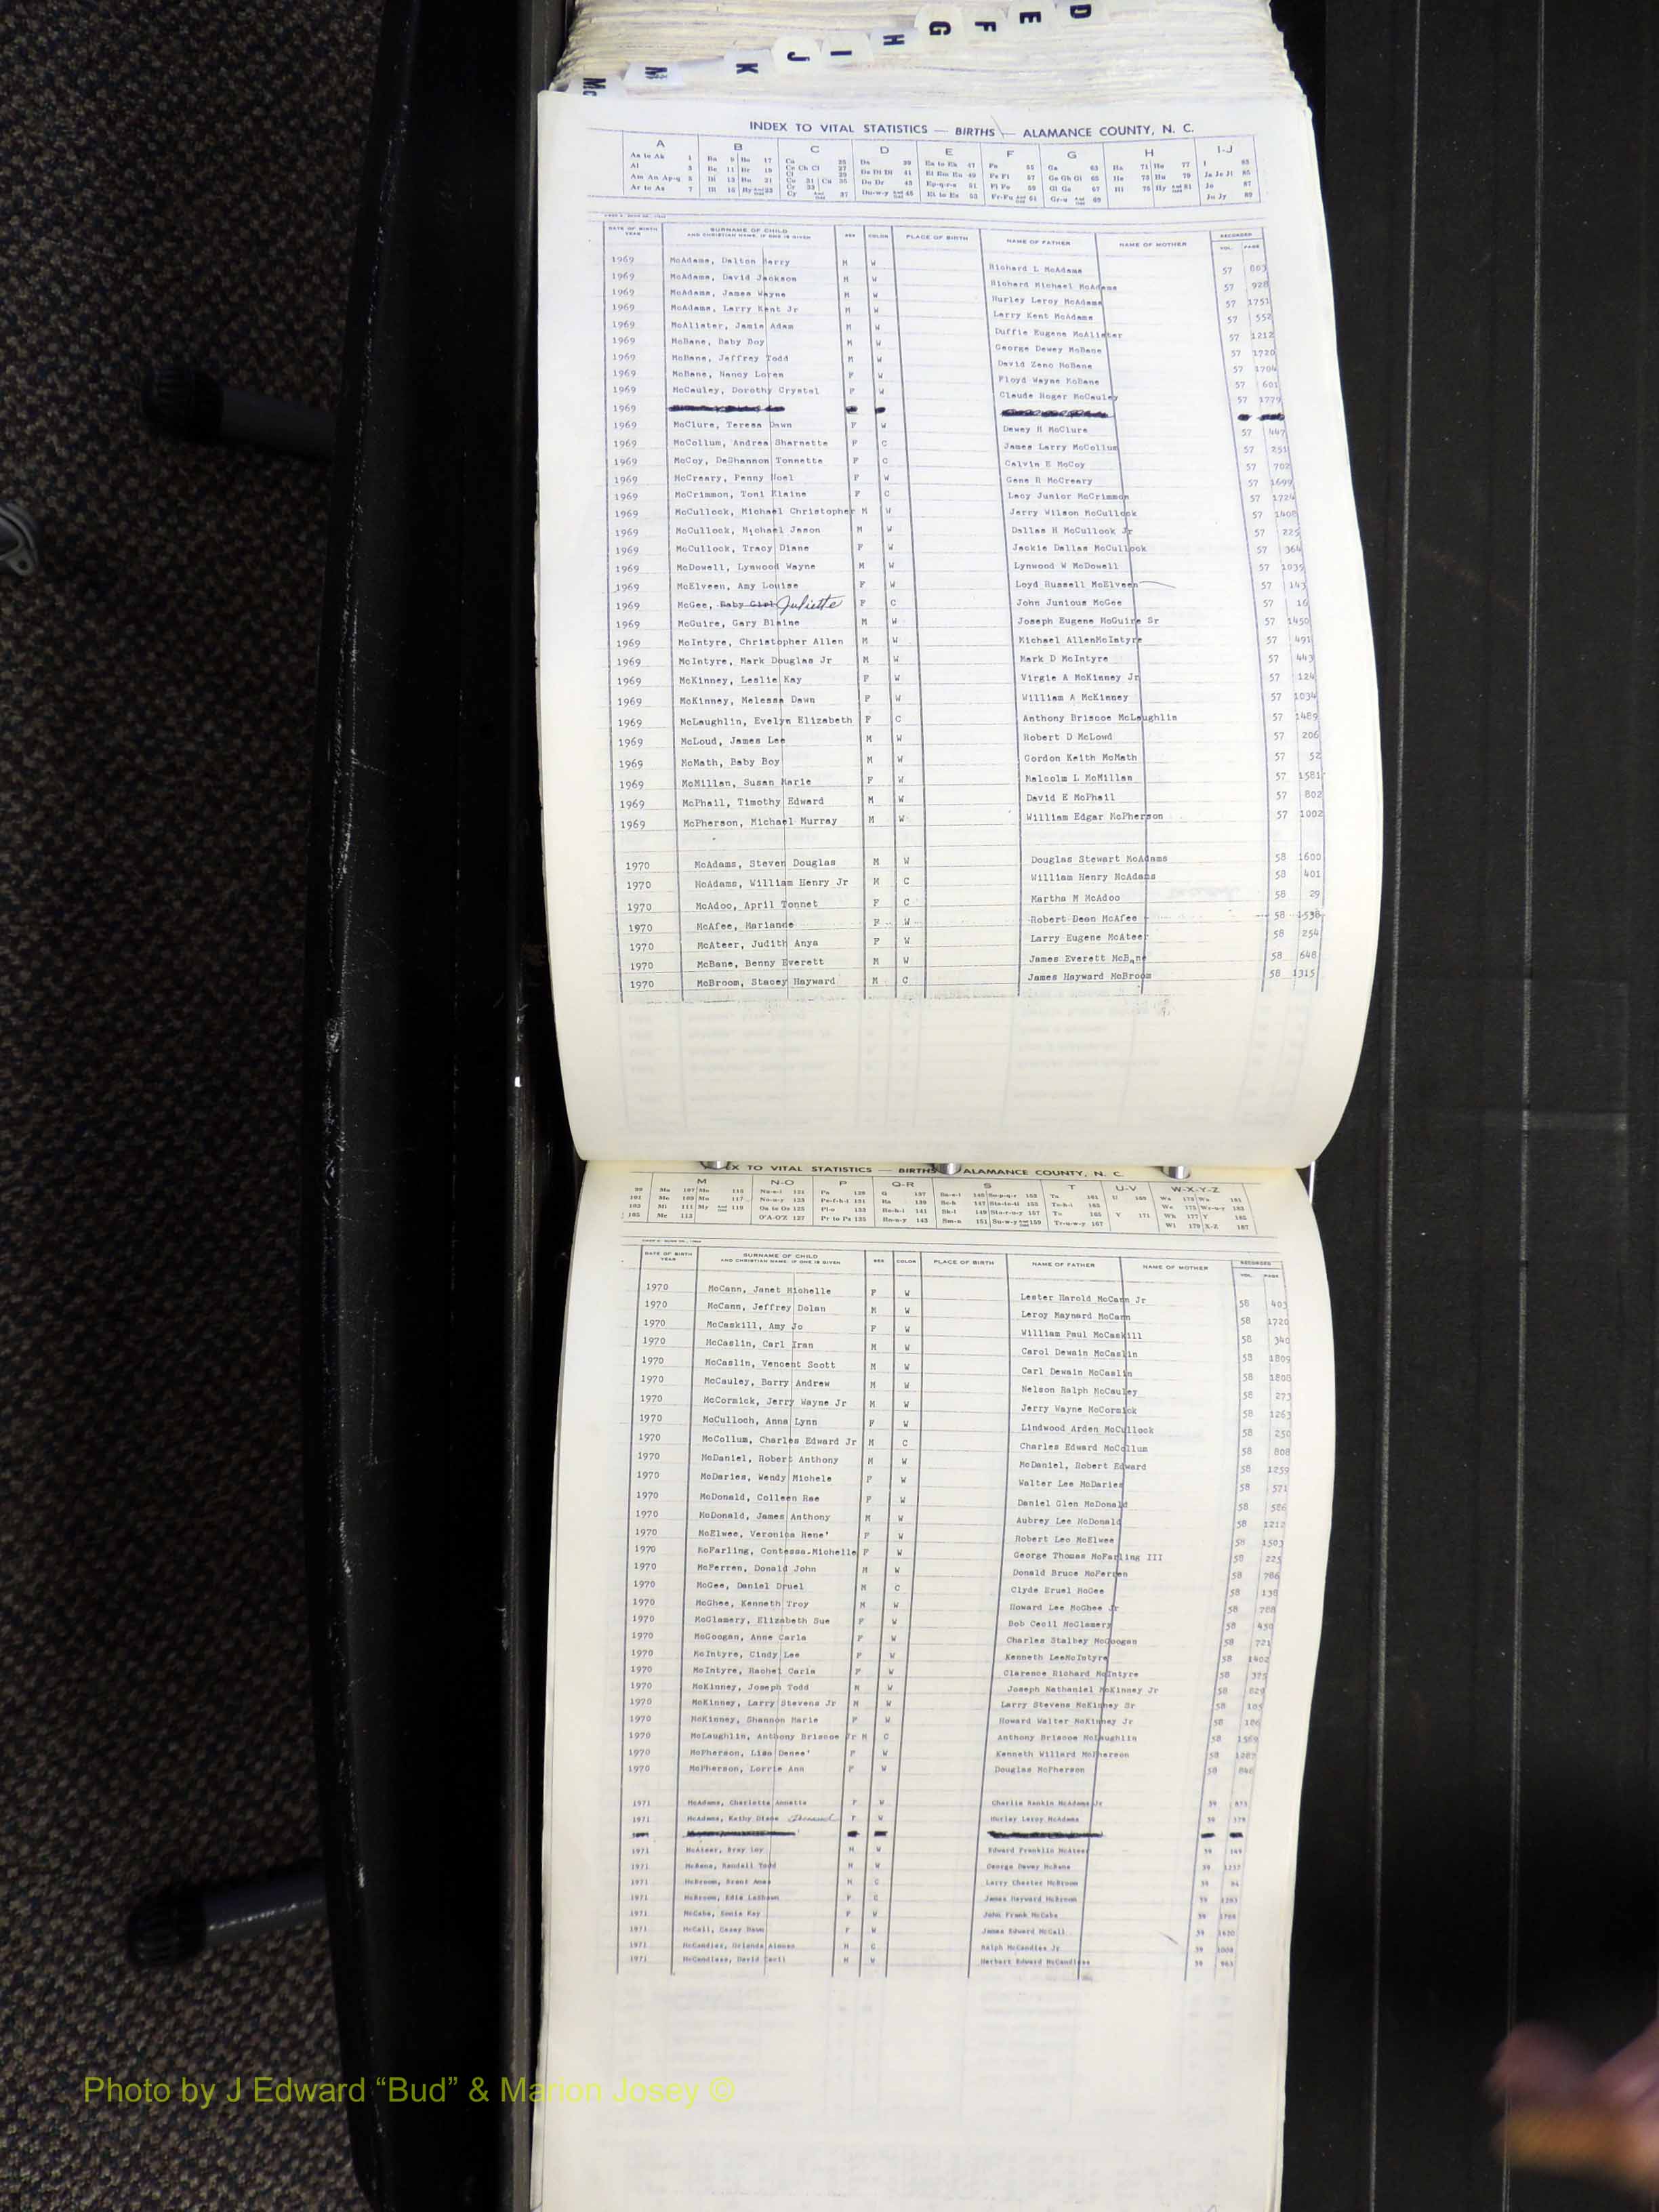 D
E
F
G
H
I
J
K
M
Mc
INDEX TO VITAL STATISTICS — BIRTHS — ALAMANCE COUNTY, N. C.
A B C D E F G H I-J
DATE OF BIRTH YEAR SURNAME OF CHILD AND CHRISTIAN NAME, IF ONE IS GIVEN SEX COLOR PLACE OF BIRTH NAME OF FATHER NAME OF MOTHER RECORDED VOL. PAGE
1969 McAdams, Dalton Harry M W Richard L McAdams 57 803
1969 McAdams, David Jackson M W Richard Michael McAdams 57 928
1969 McAdams, James Wayne M W Hurley Leroy McAdams 57 1751
1969 McAdams, Larry Kent Jr M W Larry Kent McAdams 57 552
1969 McAlister, Jamie Adam M W Duffie Eugene McAlister 57 1212
1969 McBane, Baby Boy M W George Dewey McBane 57 1720
1969 McBane, Jeffrey Todd M W David Zeno McBane 57 1704
1969 McBane, Nancy Loren F W Floyd Wayne McBane 57 601
1969 McCauley, Dorothy Crystal F W Claude Roger McCauley 57 1779
1969
1969 McClure, Teresa Dawn F W Dewey H McClure 57 447
1969 McCollum, Andrea Sharnette F C James Larry McCollum 57 251
1969 McCoy, DeShannon Tonnette F C Calvin E McCoy 57 702
1969 McCreary, Penny Noel F W Gene R McCreary 57 1699
1969 McCrimmon, Toni Elaine F C Lacy Junior McCrimmon 57 1724
1969 McCullock, Michael Christopher M W Jerry Wilson McCullock 57 1408
1969 McCullock, Michael Jason M W Dallas H McCullock Jr 57 225
1969 McCullock, Tracy Diane F W Jackie Dallas McCullock 57 364
1969 McDowell, Lynwood Wayne M W Lynwood W McDowell 57 1035
1969 McElveen, Amy Louise F W Loyd Russell McElveen 57 143
1969 McGee, Baby Girl Juliette F C John Junious McGee 57 16
1969 McGuire, Gary Blaine M W Joseph Eugene McGuire Sr 57 1450
1969 McIntyre, Christopher Allen M W Michael AllenMcIntyre 57 491
1969 McIntyre, Mark Douglas Jr M W Mark D McIntyre 57 443
1969 McKinney, Leslie Kay F W Virgie A McKinney Jr 57 124
1969 McKinney, Melessa Dawn F W William A McKinney 57 1034
1969 McLaughlin, Evelyn Elizabeth F C Anthony Briscoe McLaughlin 57 1489
1969 McLoud, James Lee M W Robert D McLowd 57 206
1969 McMath, Baby Boy M W Gordon Keith McMath 57 52
1969 McMillan, Susan Marie F W Malcolm L McMillan 57 1581
1969 McPhail, Timothy Edward M W David E McPhail 57 802
1969 McPherson, Michael Murray M W William Edgar McPherson 57 1002
1970 McAdams, Steven Douglas M W Douglas Stewart McAdams 58 1600
1970 McAdams, William Henry Jr M C William Henry McAdams 58 401
1970 McAdoo, April Tonnet F C Martha M McAdoo 58 29
1970 McAfee, Marianne F W Robert Dean McAfee 58 1538
1970 McAteer, Judith Anya F W Larry Eugene McAteer 58 254
1970 McBane, Benny Everett M W James Everett McBane 58 648
1970 McBroom, Stacey Hayward M C James Hayward McBroom 58 1315
INDEX TO VITAL STATISTICS — BIRTHS — ALAMANCE COUNTY, N. C.
M N-O P Q-R S T U-V W-X-Y-Z
DATE OF BIRTH YEAR SURNAME OF CHILD AND CHRISTIAN NAME, IF ONE IS GIVEN SEX COLOR PLACE OF BIRTH NAME OF FATHER NAME OF MOTHER RECORDED VOL. PAGE
1970 McCann, Janet Michelle F W Lester Harold McCann Jr 58 403
1970 McCann, Jeffrey Dolan M W Leroy Maynard McCann 58 1720
1970 McCaskill, Amy Jo F W William Paul McCaskill 58 340
1970 McCaslin, Carl Iran M W Carol Dewain McCaslin 58 1809
1970 McCaslin, Vencent Scott M W Carl Dewain McCaslin 58 1808
1970 McCauley, Barry Andrew M W Nelson Ralph McCauley 58 273
1970 McCormick, Jerry Wayne Jr M W Jerry Wayne McCormick 58 1263
1970 McCulloch, Anna Lynn F W Lindwood Arden McCullock 58 250
1970 McCollum, Charles Edward Jr M C Charles Edward McCollum 58 808
1970 McDaniel, Robert Anthony M W McDaniel, Robert Edward 58 1259
1970 McDaries, Wendy Michele F W Walter Lee McDaries 58 571
1970 McDonald, Colleen Rae F W Daniel Glen McDonald 58 586
1970 McDonald, James Anthony M W Aubrey Lee McDonald 58 1212
1970 McElwee, Veronica Rene' F W Robert Leo McElwee 58 1503
1970 McFarling, Contessa-Michelle F W George Thomas McFarling III 58 225
1970 McFerren, Donald John M W Donald Bruce McFerren 58 786
1970 McGee, Daniel Druel M C Clyde Eruel McGee 58 138
1970 McGhee, Kenneth Troy M W Howard Lee McGhee Jr 58 788
1970 McGlamery, Elizabeth Sue F W Bob Cecil McGlamery 58 450
1970 McGoogan, Anne Carla F W Charles Stalbey McGoogan 58 721
1970 McIntyre, Cindy Lee F W Kenneth LeeMcIntyre 58 1402
1970 McIntyre, Rachel Carla F W Clarence Richard McIntyre 58 375
1970 McKinney, Joseph Todd M W Joseph Nathaniel McKinney Jr 58 829
1970 McKinney, Larry Stevens Jr M W Larry Stevens McKinney Sr 58 105
1970 McKinney, Shannon Marie F W Howard Walter McKinney Jr 58 106
1970 McLaughlin, Anthony Briscoe Jr M C Anthony Briscoe McLaughlin 58 1569
1970 McPherson, Lisa Denee' F W Kenneth Willard McPherson 58 1287
1970 McPherson, Lorrie Ann F W Douglas McPherson 58 846
1971 McAdams, Charlotte Annette F W Charlie Rankin McAdams Jr 59 873
1971 McAdams, Kathy Diane Deceased F W Hurley Leroy McAdams 59 579
1971 McAteer, Bray Loy M W Edward Franklin McAteer 59
1971 McBane, Randall Todd M W George Dewey McBane 59 1237
1971 McBroom, Brent Amos M C Larry Chester McBroom 59 94
1971 McBroom, Edie LeShawn F C James Hayward McBroom 59
1971 McCabe, Sonia Kay F W John Frank McCabe 59
1971 McCall, Casey Dawn F W James Edward McCall 59
1971 McCandies, Orlando Alonzo M C Ralph McCandies Jr 59 1008
1971 McCandless, David Cecil M W Herbert Edward McCandless 59 963
Photo by J Edward “Bud” & Marion Josey ©